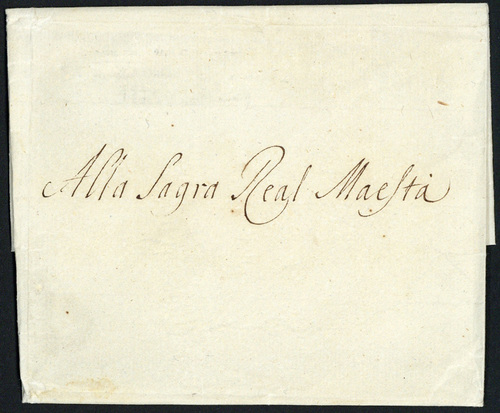 Alla Sagra Real Maestà